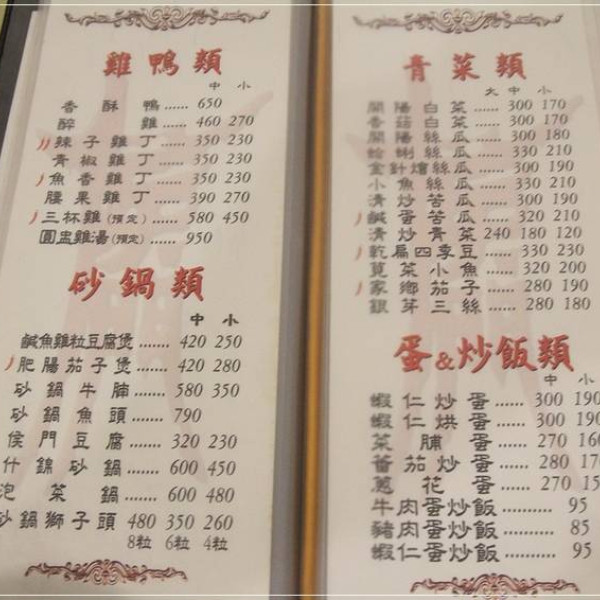 雞鴨類
中 小
香酥鴨...... 650
醉雞...... 460 270
辣子雞丁...... 350 230
青椒雞丁...... 350 230
魚香雞丁...... 350 230
腰果雞丁...... 390 270
三杯雞(預定)...... 580 450
圓盅雞湯(預定)...... 950
砂鍋類
中 小
鹹魚雞粒豆腐煲...... 420 250
肥腸茄子煲...... 420 280
砂鍋牛腩...... 580 350
砂鍋魚頭...... 790
侯門豆腐...... 320 230
什錦砂鍋...... 600 450
泡菜鍋...... 600 480
砂鍋獅子頭 480 350 260
8粒 6粒 4粒
青菜類
大 中 小
開陽白菜...... 300 170
香菇白菜...... 300 170
開陽絲瓜...... 300 180
蛤蜊絲瓜...... 330 210
金針燴絲瓜...... 300 190
小魚絲瓜...... 330 210
清炒苦瓜...... 300 190
鹹蛋苦瓜...... 320 210
清炒青菜 240 180 120
乾扁四季豆...... 330 230
莧菜小魚...... 320 200
家鄉茄子...... 280 190
銀芽三絲...... 280 180
蛋&炒飯類
中 小
蝦仁炒蛋...... 300 190
蝦仁烘蛋...... 300 190
菜脯蛋...... 270 160
蕃茄炒蛋...... 280 170
蔥花蛋...... 270
牛肉蛋炒飯.......... 95
豬肉蛋炒飯.......... 85
蝦仁蛋炒飯.......... 95